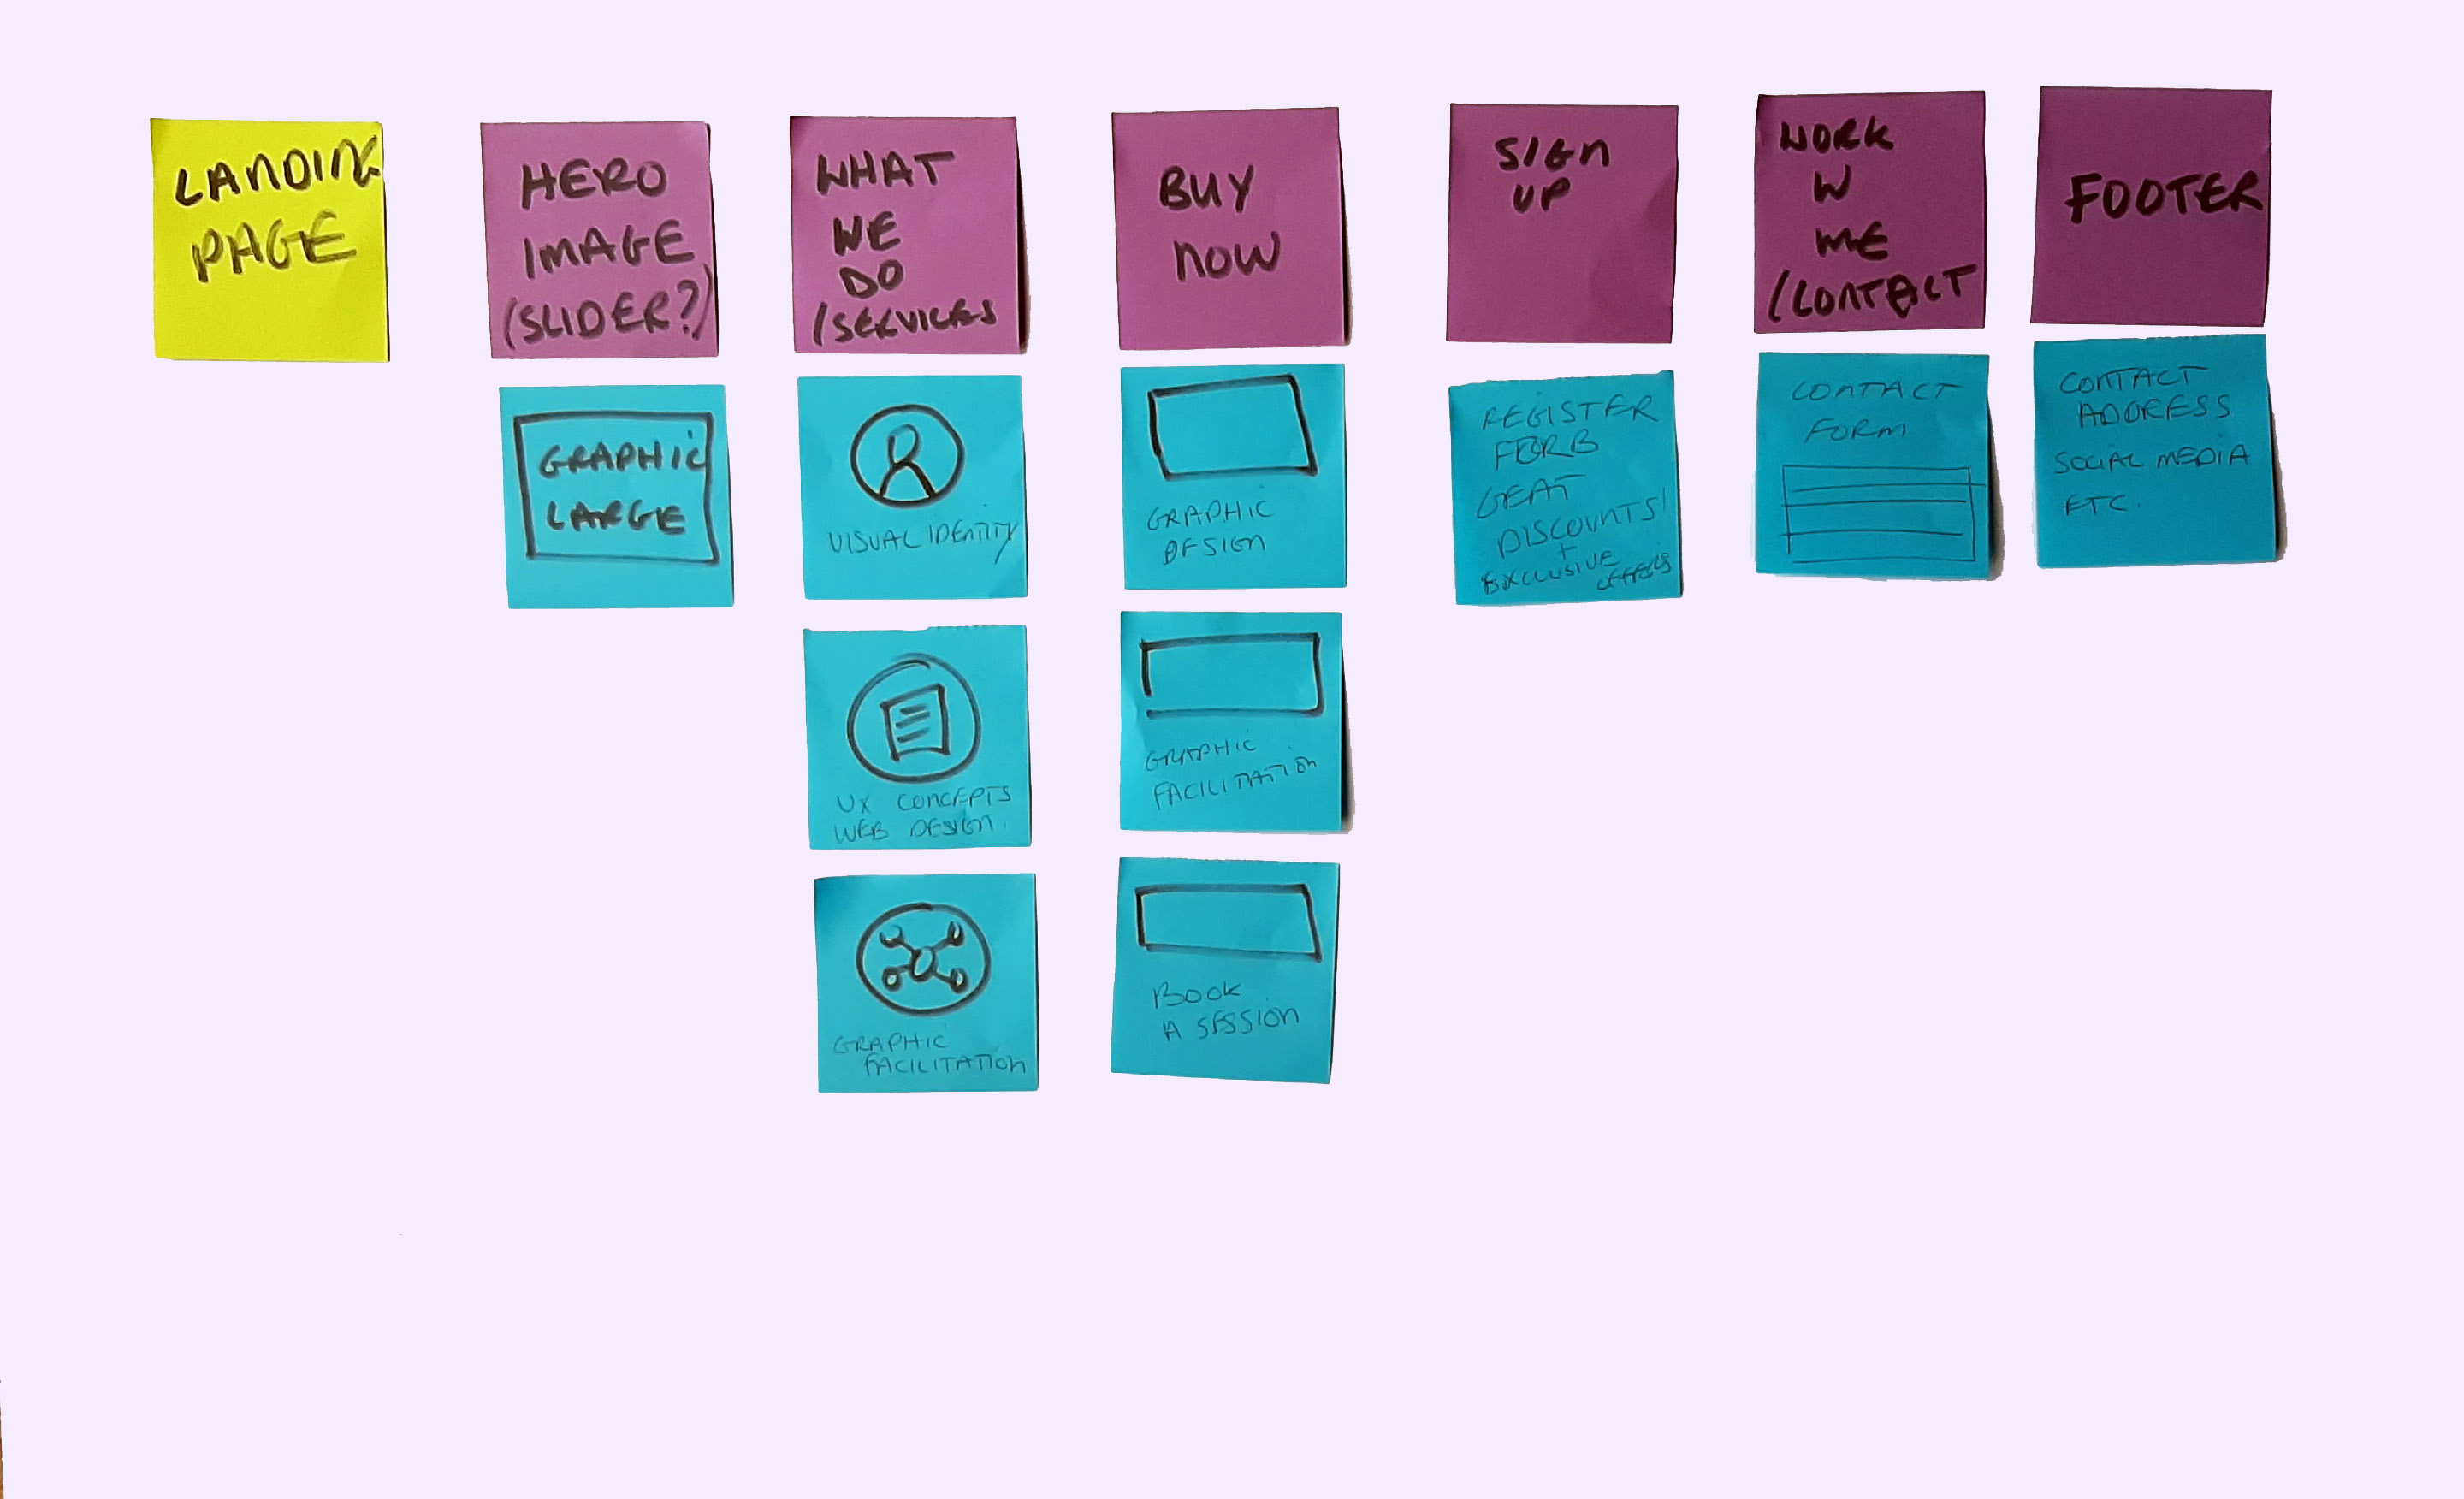 LANDING
PAGE
HERO
IMAGE
(SLIDER?)
GRAPHIC
LARGE
WHAT
WE
DO
/SERVICES
VISUAL IDENTITY
UX CONCEPTS
WEB DESIGN.
GRAPHIC
FACILITATION
BUY
NOW
GRAPHIC
DESIGN
GRAPHIC
FACILITATION
BOOK
A SESSION
SIGN
UP
REGISTER
GEAT
DISCOUNTS!
+
EXCLUSIVE
offers
WORK
W
ME
/CONTACT
CONTACT
FORM
FOOTER
CONTACT
ADDRESS
SOCIAL MEDIA
ETC.